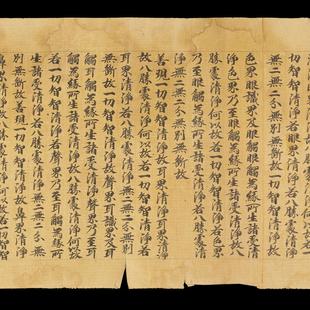 若一切智智清淨若眼界清淨若八勝處清
淨無二無二分無別無斷故一切智智清淨故
色界眼識界及眼觸眼觸為緣所生諸受清
淨色界乃至眼觸為緣所生諸受清淨故八
勝處清淨何以故若一切智智清淨若色界
乃至眼觸為緣所生諸受清淨若八勝處清
淨無二無二分無別無斷故
善現一切智智清淨故耳界清淨耳界清淨
故八勝處清淨何以故若一切智智清淨若
耳界清淨若八勝處清淨無二無二分無別
無斷故一切智智清淨故聲界耳識界及耳
觸耳觸為緣所生諸受清淨聲界乃至耳
觸為緣所生諸受清淨故八勝處清淨何以故
若一切智智清淨若聲界乃至耳觸為緣所
生諸受清淨若八勝處清淨無二無二分無
別無斷故善現一切智智清淨故鼻界清淨
鼻界清淨故八勝處清淨何以故若一切智智